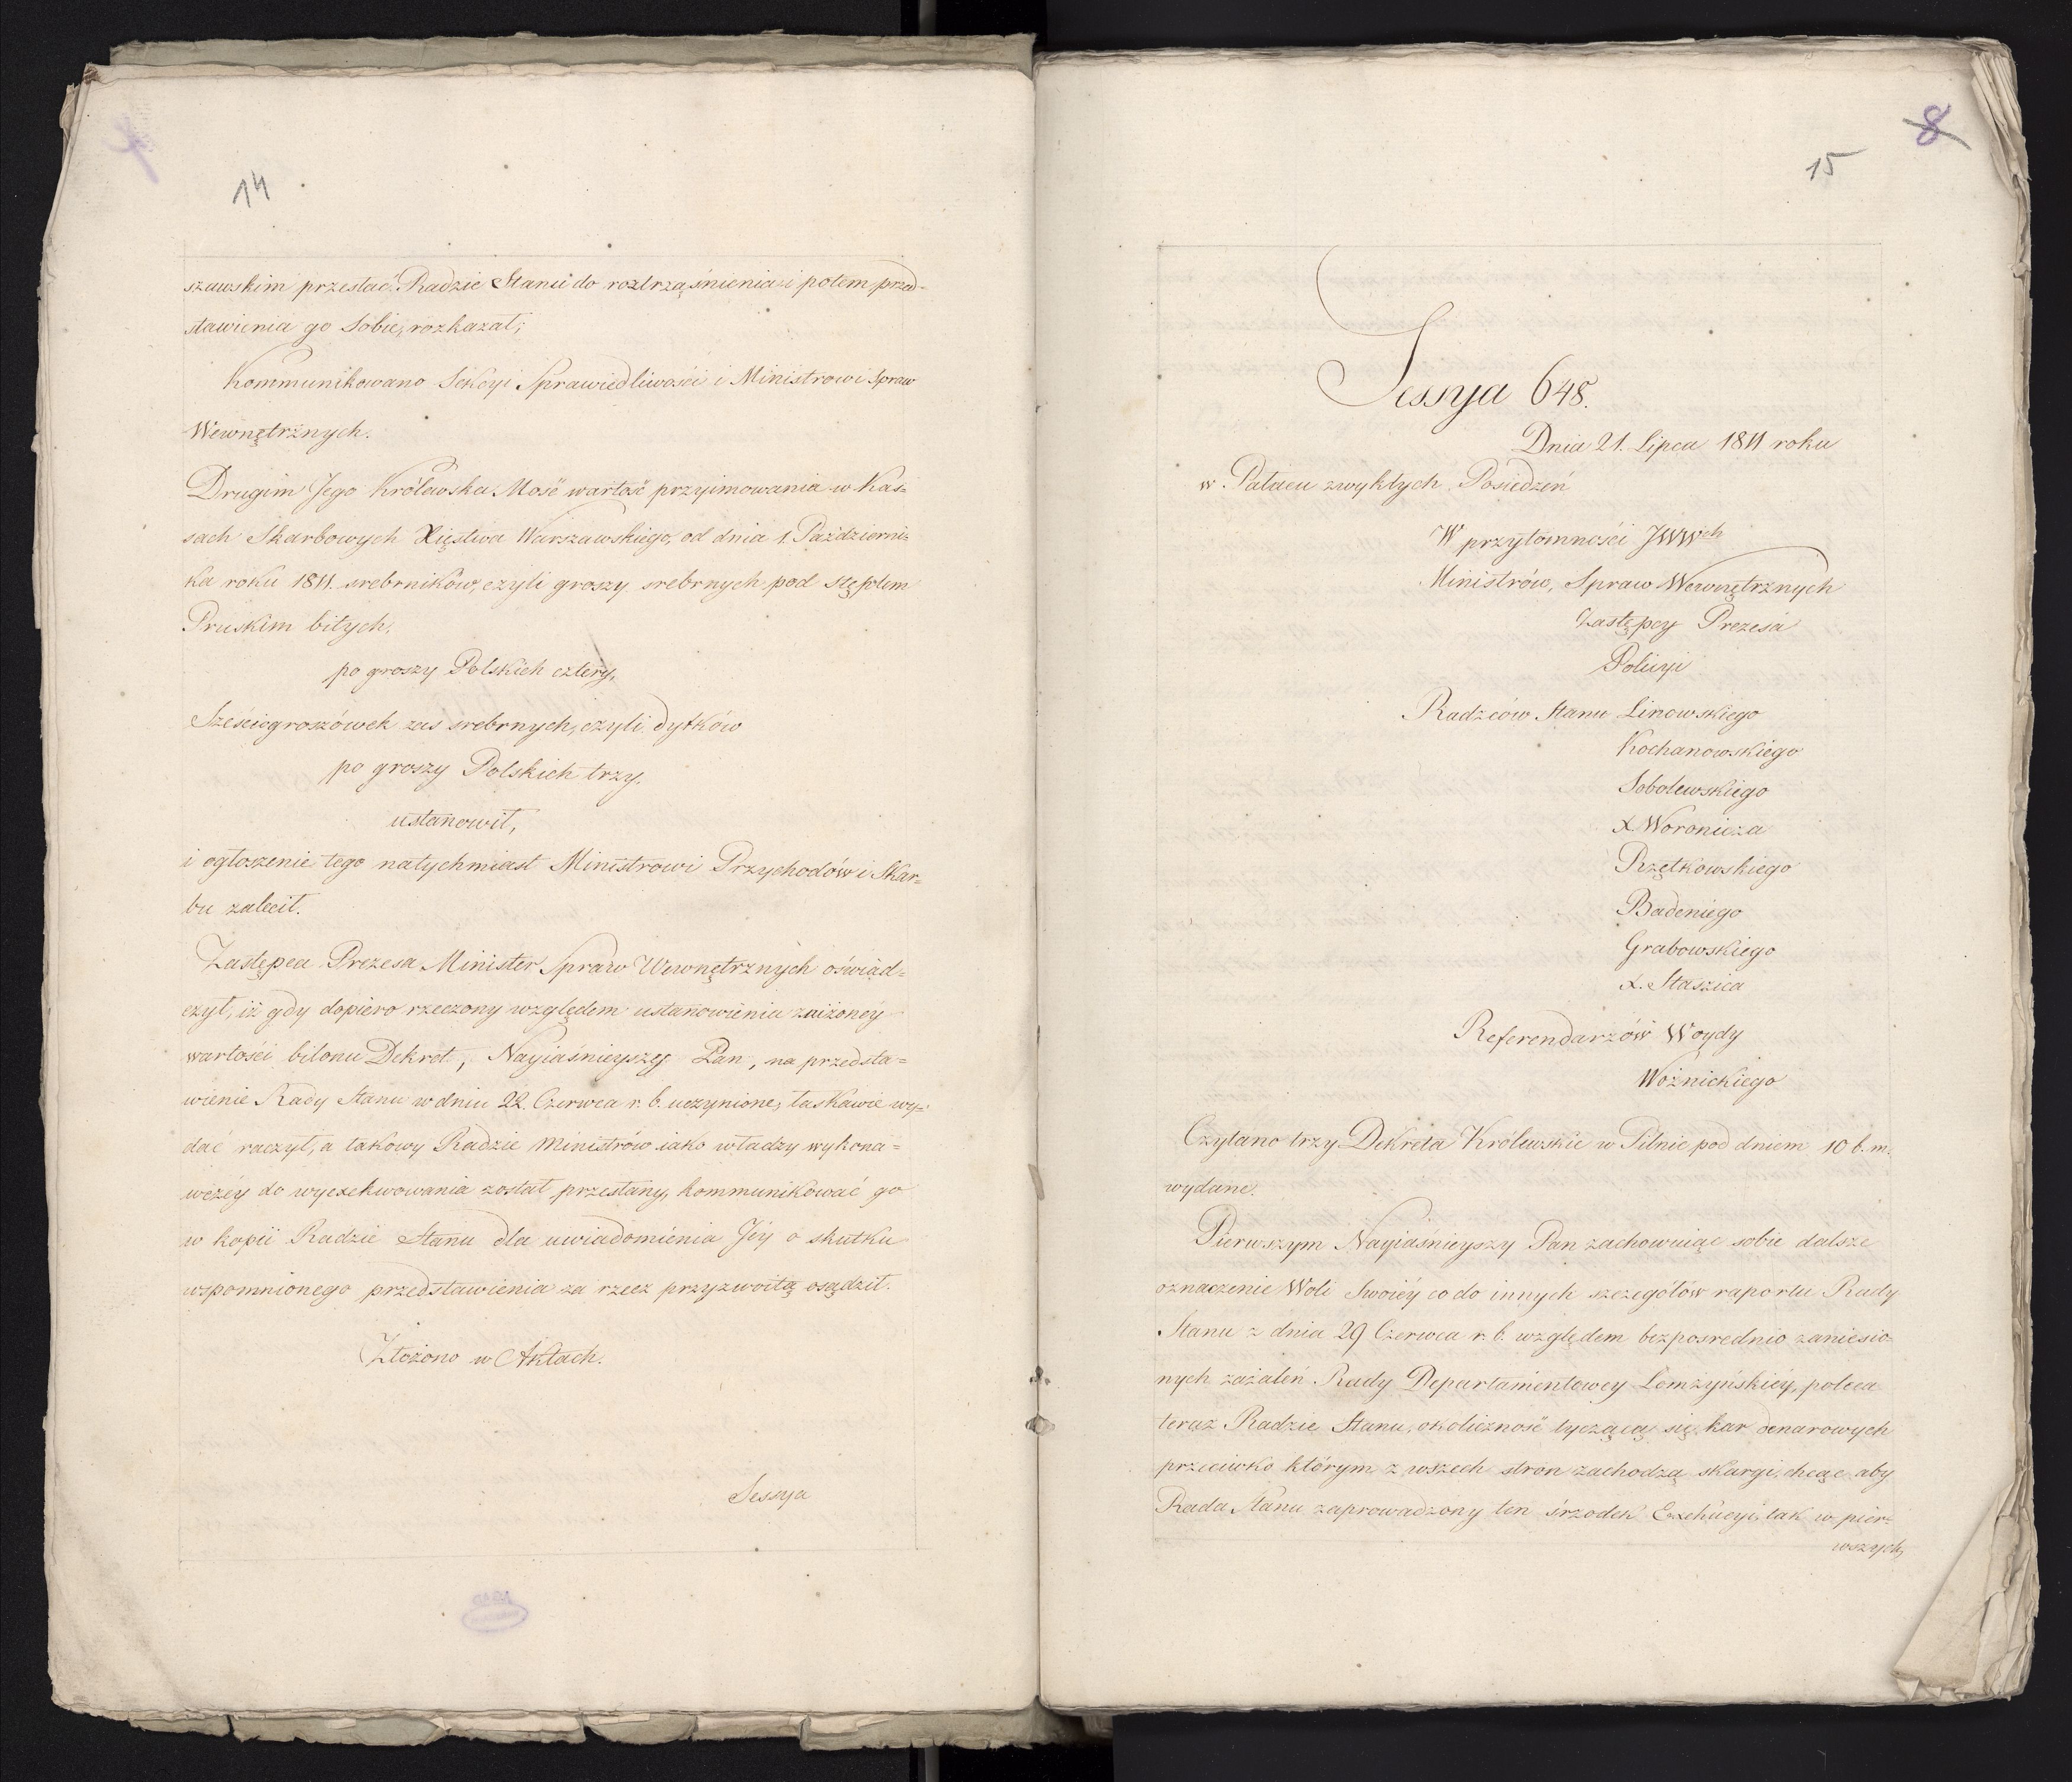 14
szawskim przesłać Radzie Stanu do roztrząśnienia i potem przed-
stawienia go Sobie, rozkazał;
Kommunikowano Sekcyi Sprawiedliwości i Ministrowi Spraw
Wewnętrznych.
Drugim Jego Królewska Mość wartość przyimowania w Kas-
sach Skarbowych Xięstwa Warszawskiego, od dnia 1. Październi-
ka roku 1811. srebrników, czyli groszy srebrnych pod stęplem
Pruskim bitych,
po groszy Polskich cztery,
Sześciogroszówek zas srebrnych, czyli dytków
po groszy Polskich trzy,
ustanowił,
i ogłoszenie tego natychmiast Ministrowi Przychodów i Skar-
bu zalecił.
Zastępca Prezesa Minister Spraw Wewnętrznych oświad-
czył, iż gdy dopiero rzeczony względem ustanowienia zniżoney
wartości bilonu Dekret, Nayiaśnieyszy Pan, na przedsta-
wienie Rady Stanu w dniu 22. Czerwca r. b. uczynione, łaskawie wy-
dać raczył, a takowy Radzie Ministrów iako władzy wykona-
wczéy do wyexekwowania został przesłany, kommunikować go
w kopii Radzie Stanu dla uwiadomienia Jéy o skutku
wspomnionego przedstawienia za rzecz przyzwoitą osądził.
Złożono w Aktach.
Sessya
8
15
Sessya 648.
Dnia 21. Lipca 1811 roku
w Pałacu zwykłych Posiedzeń
W przytomności JWWch
Ministrów, Spraw Wewnętrznych
Zastępcy Prezesa
Policyi
Radzców Stanu Linowskiego
Kochanowskiego
Sobolewskiego
X. Woronicza
Rzętkowskiego
Badeniego
Grabowskiego
X. Staszica
Referendarzów Woydy
Woźnickiego
Czytano trzy Dekreta Królewskie w Pilnic pod dniem 10 b. m.
wydane.
Pierwszym Nayiaśnieyszy Pan zachowuiąc sobie dalsze
oznaczenie Woli Swoiéy co do innych szczegółów raportu Rady
Stanu z dnia 29 Czerwca r. b. względem bezposrednio zaniesio-
nych zażaleń Rady Departamentowey Łomżyńskiéy, poleca
teraz Radzie Stanu, okoliczność tyczącą się kar denarowych
przeciwko którym z wszech stron zachodzą skargi, chcąc aby
Rada Stanu zaprowadzony ten śrzodek Exekucyi, tak w pier-
wszych,